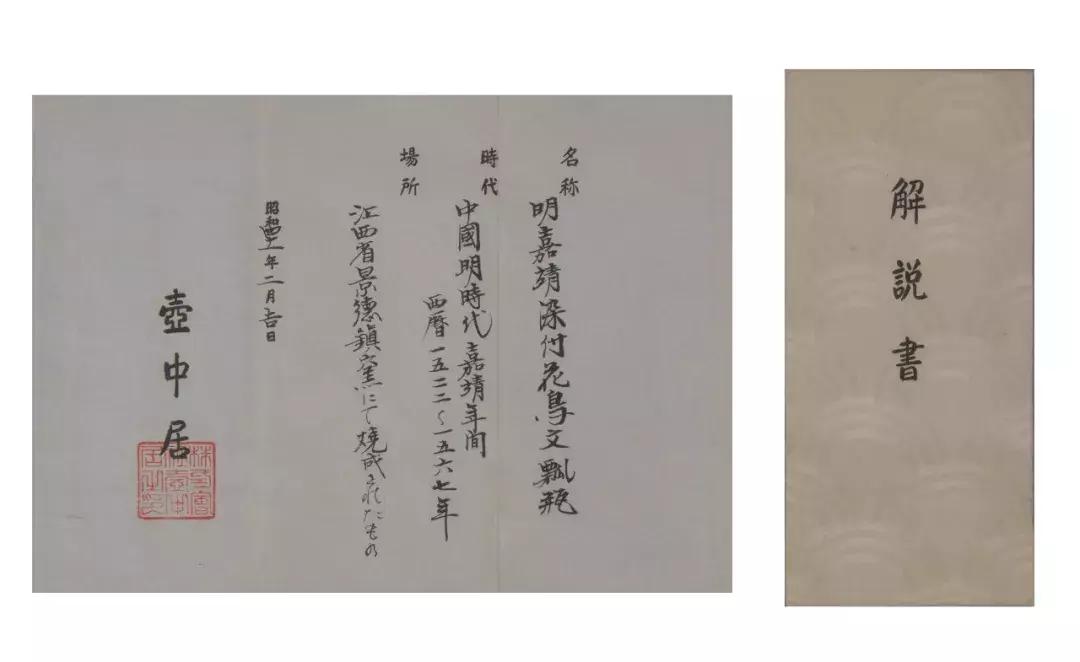 名称
明嘉靖染付花鳥文瓢瓶
時代
中國明時代嘉靖年间
西暦一五二二〜一五六七年
場所
江西省景德鎮窯にて焼成されたもの
年二月吉日
壺中居
解説書